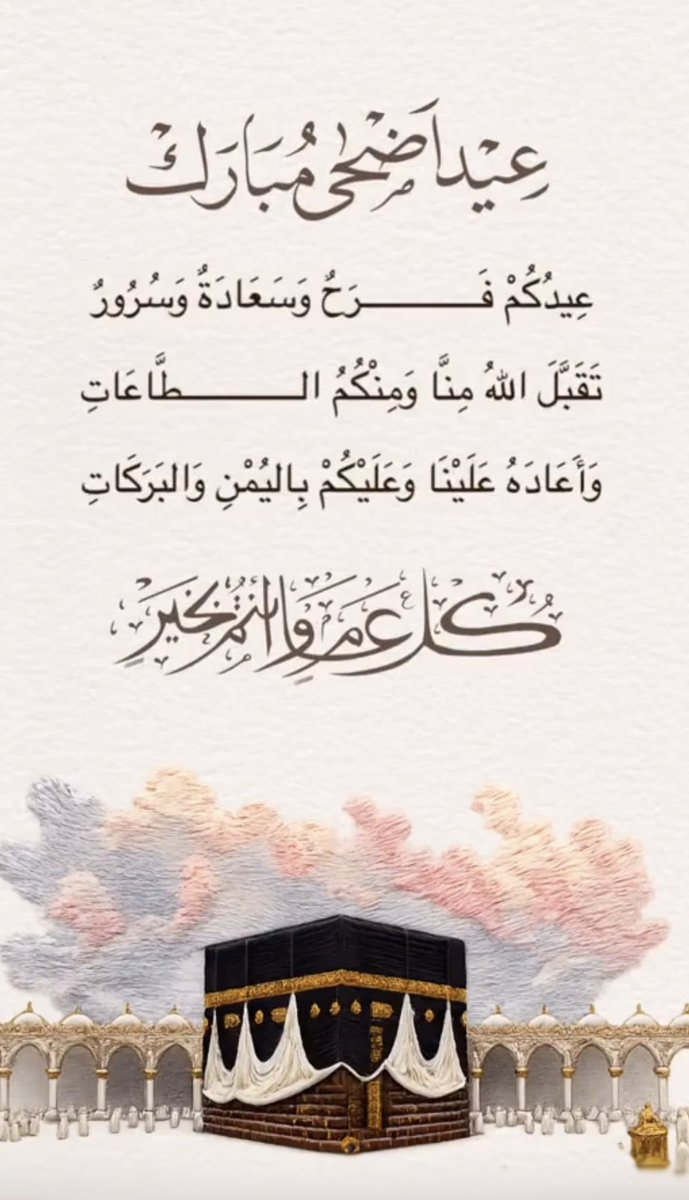 عيد اضحى مبارك
عِيدُكُمْ فَـــــــــرَحٌ وَسَعَادَةٌ وَسُرُورٌ
تَقَبَّلَ اللهُ مِنَّا وَمِنْكُمُ الـــــــــطَّاعَاتِ
وَأَعَادَهُ عَلَيْنَا وَعَلَيْكُمْ بِاليُمْنِ وَالبَرَكَاتِ
كُل عَام وَانتُم بخَيرٍ